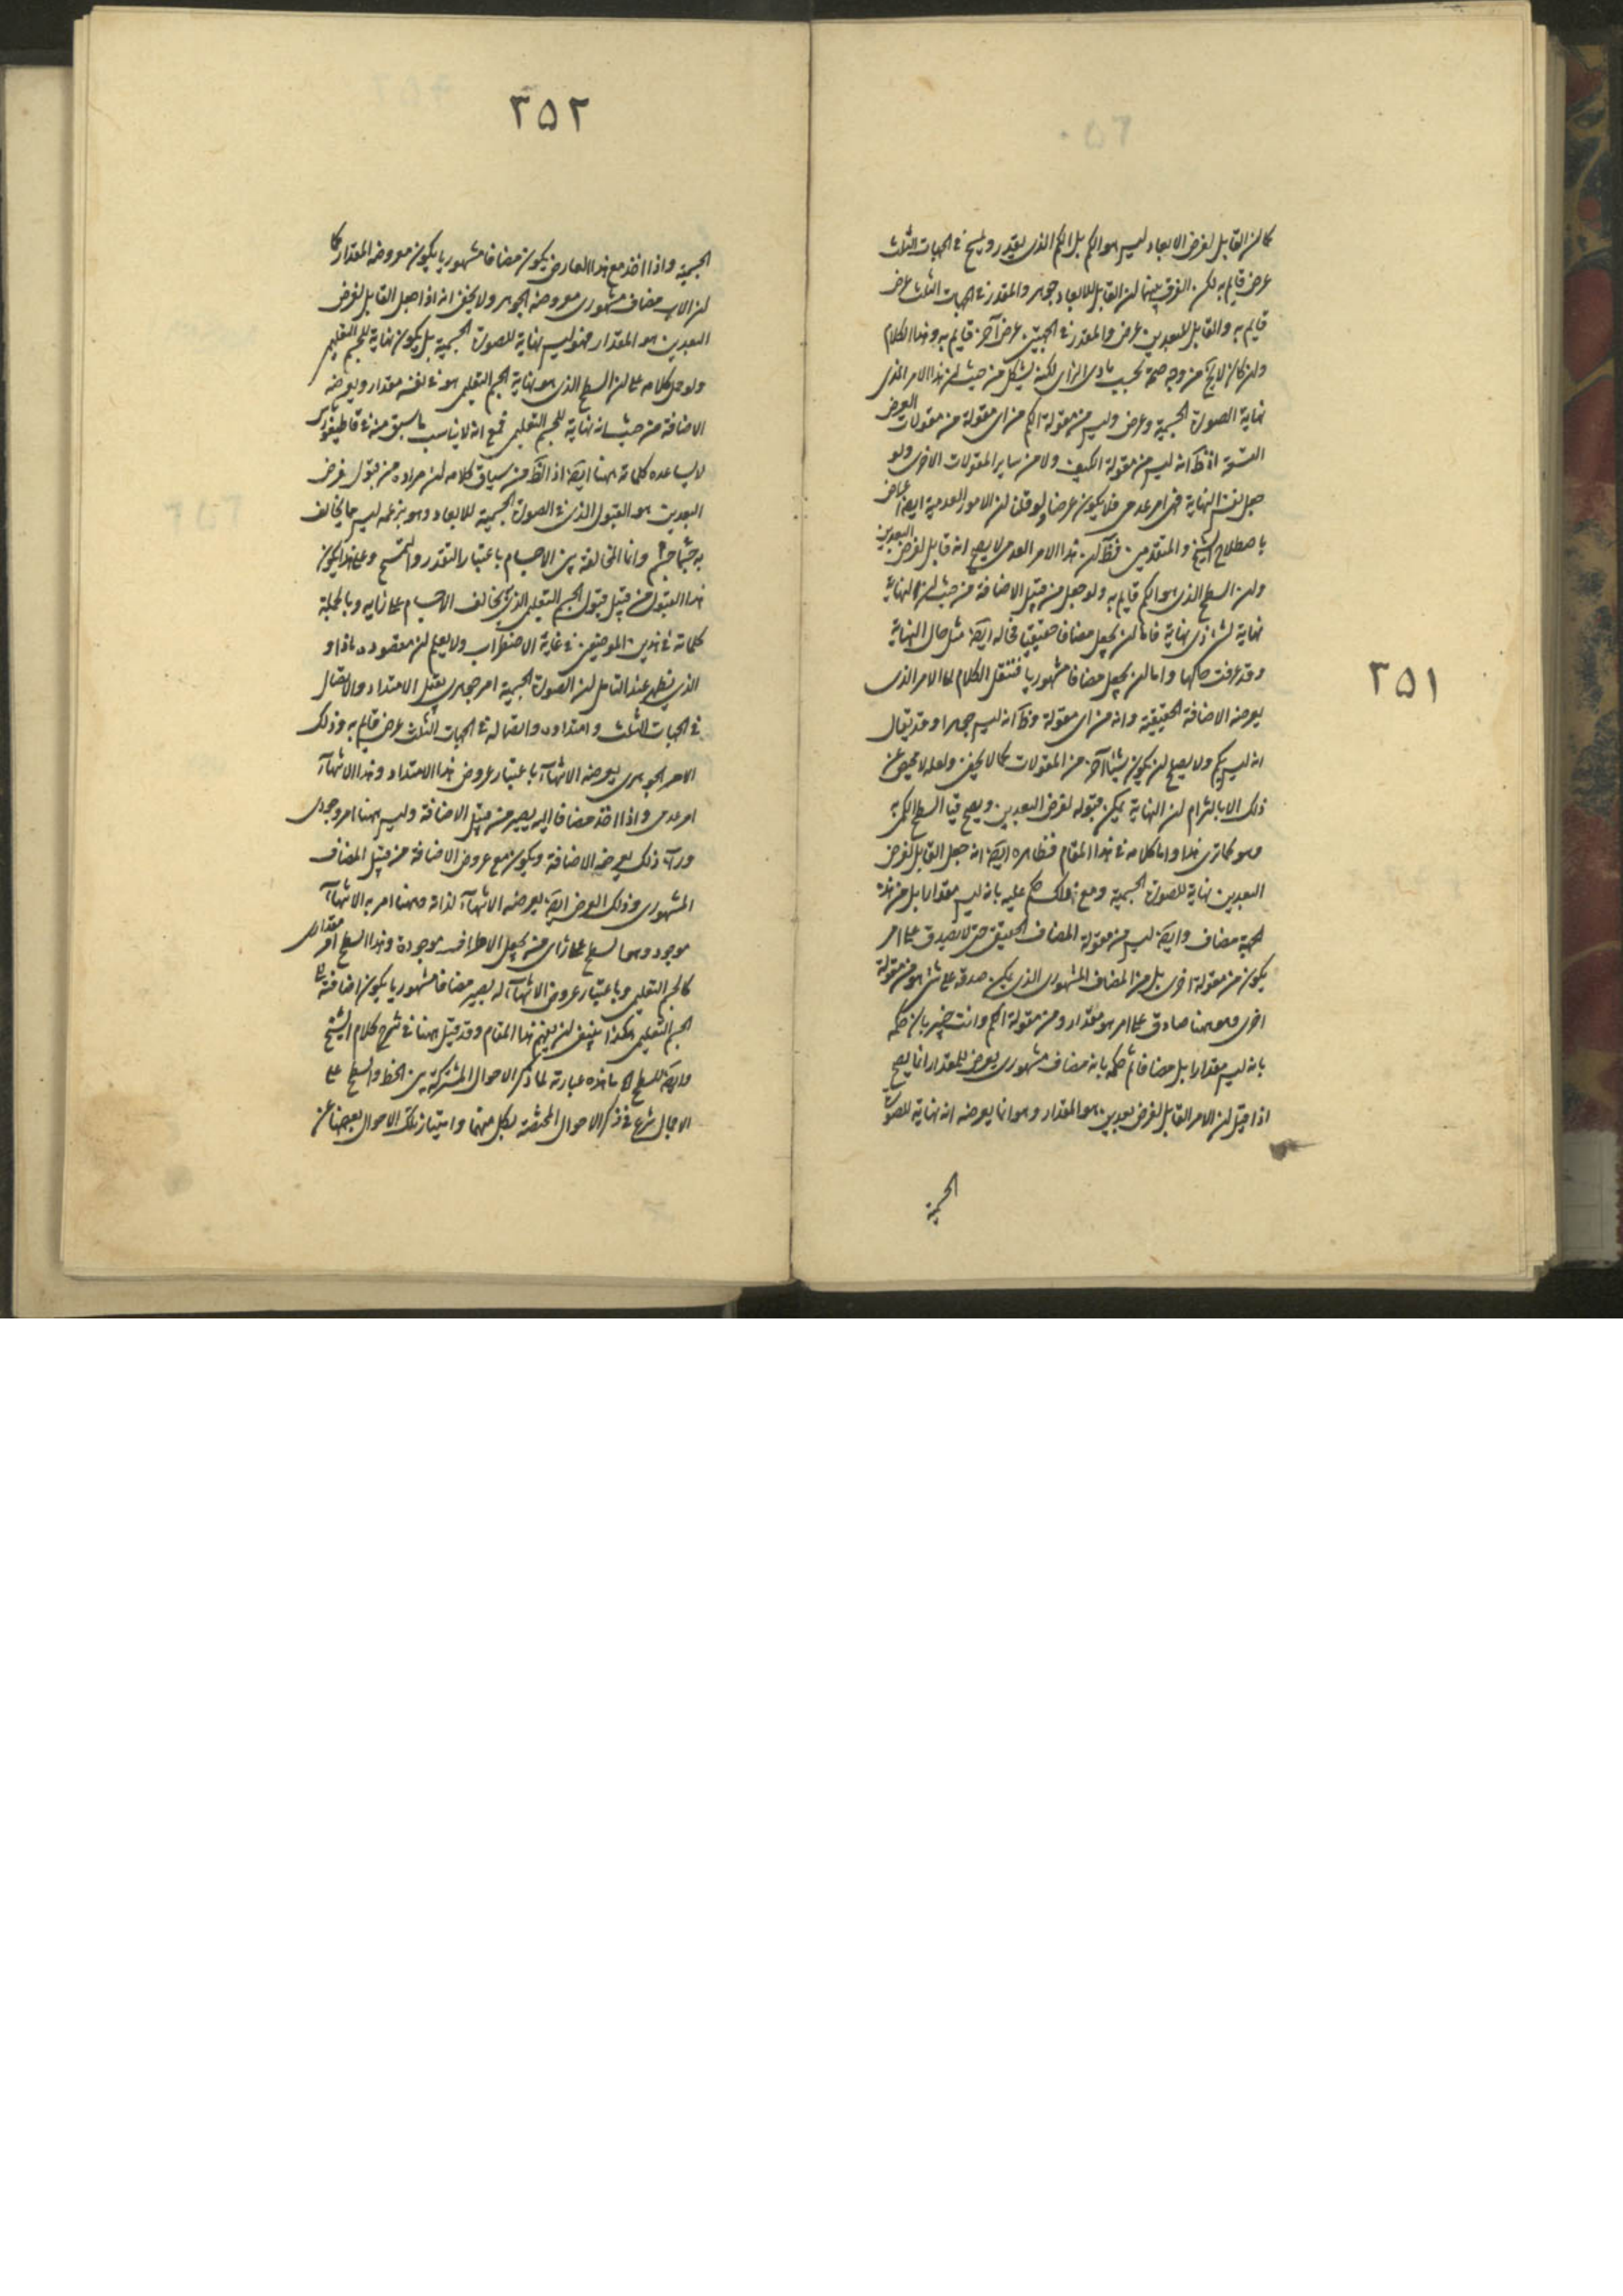 كما ان القابل لفرض الابعاد ليس هو الكم بل الكم الذى يتقدر ويمسح فى الجهات الثلث
عرض قايم به لكن الفرق بينهما ان القابل للابعاد جوهر والمقدر فى الجهات الثلث عرض
قايم به والقابل للبعدين عرض والمقدر فى الجهتين عرض آخر قايم به وهذا الكلام
وان كان لايخ من وجه صحة بحسب بادى الراى لكنه يشكل من حيث ان هذا الامر الذى
نهاية الصورة الجسمية وعرض وليس من مقولة الكم من اى مقولة من مقولات العرض
التسعة اذ ظ انه ليس من مقولة الكيف ولا من ساير المقولات الاخرى ولو
جعل نفس النهاية فهى امر عدمى فلا يكون عرضا ولو قلنا ان الامور العدمية ايضا اعراض
باصطلاح الشيخ والمتقدمين فظ ان هذا الامر العدمى لا يصح انه قابل لفرض البعدين
وان السطح الذى هو الكم قايم به ولو جعل من قبيل الاضافة من حيث ان النهاية
نهاية لشئ ذى نهاية فاما ان يجعل مضافا حقيقيا فحاله ايضا مثل حال النهاية
وقد عرفت حالها واما ان يجعل مضافا مشهوريا فننقل الكلام الى الامر الذى
يعرضه الاضافة الحقيقية وانه من اى مقولة وظ انه ليس جوهرا وقد يقال
انه ليس بكم ولا يصح ان يكون شيئا آخر من المقولات كما لا يخفى ولعله لا محيص عن
ذلك الا بالتزام ان النهاية يمكن قبوله لفرض البعدين ويصح قيام السطح الكمى به
وهو كما ترى هذا واما كلامه فى هذا المقام فظاهره ايضا انه جعل القابل لفرض
البعدين نهاية للصورة الجسمية ومع ذلك حكم عليه بانه ليس مقدارا بل من هذه
الجهة مضاف وايضا ليس من مقولة المضاف الحقيقى حتى لا يصدق على امر
يكون من مقولة اخرى بل من المضاف المشهورى الذى يمكن صدقه على شئ هو من مقولة
اخرى وههنا صادق على امر هو مقدار ومن مقولة الكم وانت خبير بان حكمه
بانه ليس مقدارا بل مضافا ثم حكمه بانه مضاف مشهورى يعرض للمقدار انما يصح
اذا قيل ان الامر القابل لفرض بعدين هو المقدار وهو انما يعرضه انه نهاية للصورة
الجسمية
٣٥١
٣٥٢
الجسمية واذا اخذ مع هذا العارض يكون مضافا مشهوريا يكون معروضه المقدار كما
ان الاب مضاف مشهورى معروضه الجوهر ولا يخفى انه اذا جعل القابل لفرض
البعدين هو المقدار فهو ليس نهاية للصورة الجسمية بل يكون نهاية للجسم التعليمى
ولو حمل كلامه على ان السطح الذى هو نهاية الجسم التعليمى هو فى نفسه مقدار ويعرضه
الاضافة من حيث انه نهاية للجسم التعليمى فمع انه لا يناسب ما سبق منه فى قاطيغورياس
لا يساعده كلماته ههنا ايضا اذ الظ من سياق كلامه ان مراده من قبول فرض
البعدين هو القبول الذى فى الصورة الجسمية للابعاد وهو بزعمه ليس مما يخالف
به جسما جسم وانما المخالفة بين الاجسام باعتبار التقدر والتمسح وعلى هذا يكون
هذا القبول من قبيل قبول الجسم التعليمى الذى يخالف الاجسام على رايه وبالجملة
كلماته فى هذين الموضعين فى غاية الاضطراب ولا يعلم ان مقصوده ماذا و
الذى يظهر عند التامل ان الصورة الجسمية امر جوهرى يقبل الامتداد والاتصال
فى الجهات الثلث وامتداده واتصاله فى الجهات الثلث عرض قايم به وذلك
الامر الجوهرى يعرضه الانتهاآ باعتبار عروض هذا الامتداد وهذا الانتهاآ
امر عدمى واذا اخذ مضافا اليه يصير من قبيل الاضافة وليس ههنا امر وجودى
ورآء ذلك يعرضه الاضافة ويكون مع عروض الاضافة من قبيل المضاف
المشهورى وذلك العرض ايضا يعرضه الانتهاآ لذاته وههنا امر به الانتهاآ
موجود وهما لسطح على راى من يجعل الاطراف موجودة وهذا السطح امر مقدارى
كالجسم التعليمى وباعتبار عروض الانتهاآ له يصير مضافا مشهوريا يكون اضافته الى
الجسم التعليمى هكذا ينبغى ان يفهم هذا المقام وقد قيل ههنا فى شرح كلام الشيخ
وايضا للسطح الخ ما هذه عبارته لما ذكر الاحوال المشتركة بين الخط والسطح على
الاجمال شرع فى ذكر الاحوال المختصة بكل منهما وامتياز تلك الاحوال بعضها عن